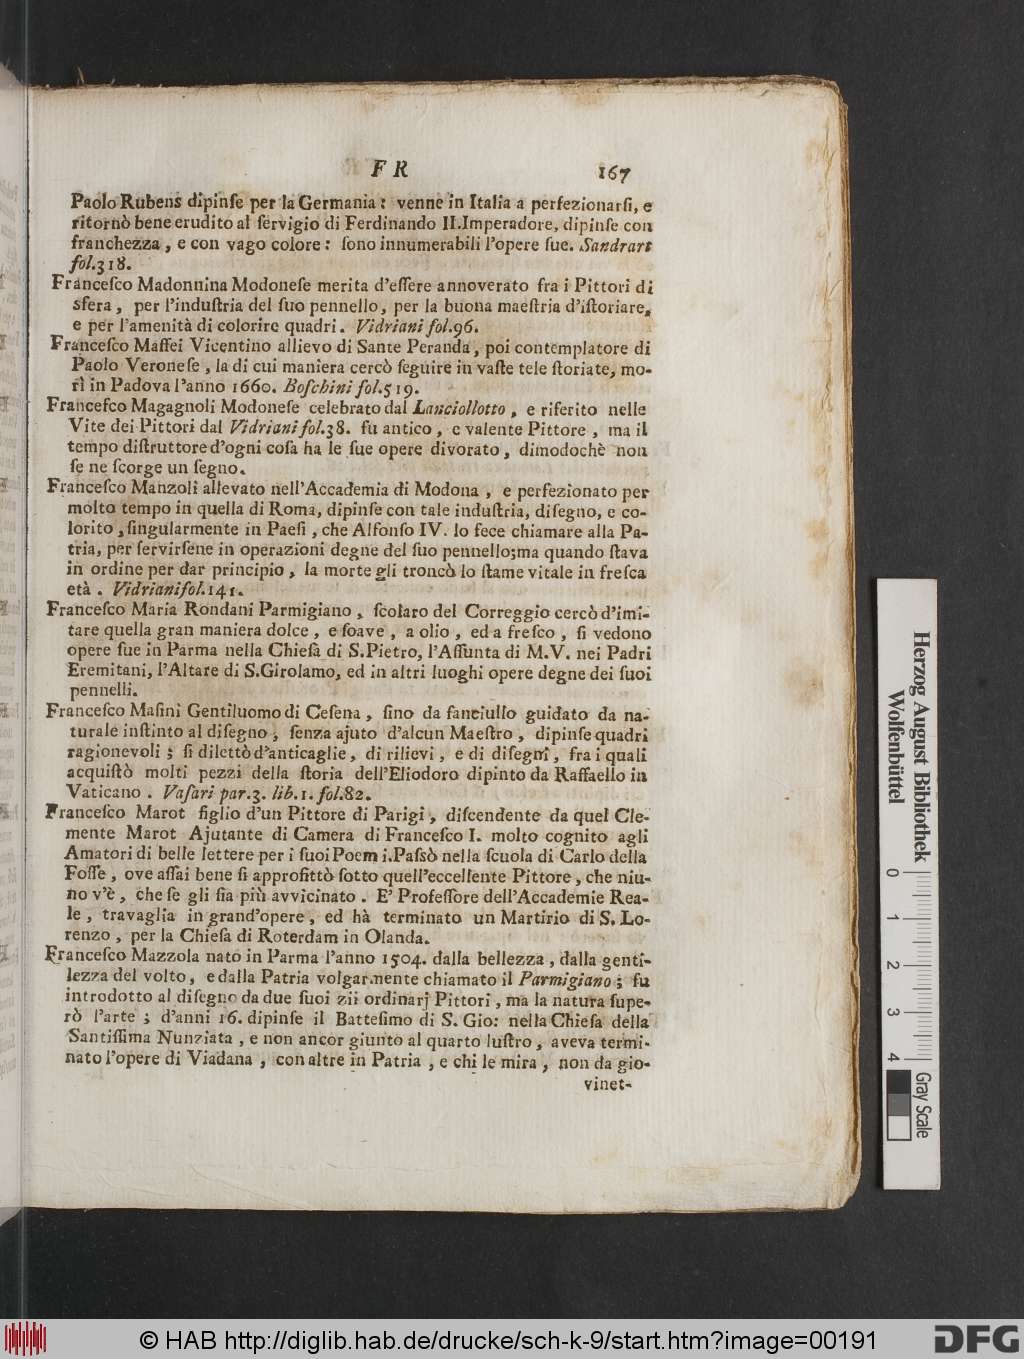 F R 167
Paolo Rubens dipinſe per la Germania: venne in Italia a perfezionarſi, e
ritornò bene erudito al ſervigio di Ferdinando II. Imperadore, dipinſe con
franchezza, e con vago colore: ſono innumerabili l'opere ſue. Sandrart
fol. 318.
Franceſco Madonnina Modoneſe merita d'eſſere annoverato fra i Pittori di
sfera, per l'induſtria del ſuo pennello, per la buona maeſtria d'iſtoriare,
e per l'amenità di colorire quadri. Vidriani fol. 96.
Franceſco Maffei Vicentino allievo di Sante Peranda, poi contemplatore di
Paolo Veroneſe, la di cui maniera cercò ſeguire in vaſte tele ſtoriate, mo-
rì in Padova l'anno 1660. Boſchini fol. 519.
Franceſco Magagnoli Modoneſe celebrato dal Lanciollotto, e riferito nelle
Vite dei Pittori dal Vidriani fol. 38. fu antico, e valente Pittore, ma il
tempo diſtruttore d'ogni coſa ha le ſue opere divorato, dimodochè non
ſe ne ſcorge un ſegno.
Franceſco Manzoli allevato nell'Accademia di Modona, e perfezionato per
molto tempo in quella di Roma, dipinſe con tale induſtria, diſegno, e co-
lorito, ſingularmente in Paeſi, che Alfonſo IV. lo fece chiamare alla Pa-
tria, per ſervirſene in operazioni degne del ſuo pennello; ma quando ſtava
in ordine per dar principio, la morte gli troncò lo ſtame vitale in freſca
età. Vidriani fol. 141.
Franceſco Maria Rondani Parmigiano, ſcolaro del Correggio cercò d'imi-
tare quella gran maniera dolce, e ſoave, a olio, ed a freſco, ſi vedono
opere ſue in Parma nella Chieſa di S. Pietro, l'Aſſunta di M. V. nei Padri
Eremitani, l'Altare di S. Girolamo, ed in altri luoghi opere degne dei ſuoi
pennelli.
Franceſco Maſini Gentiluomo di Ceſena, ſino da fanciullo guidato da na-
turale inſtinto al diſegno, ſenza ajuto d'alcun Maeſtro, dipinſe quadri
ragionevoli; ſi dilettò d'anticaglie, di rilievi, e di diſegni, fra i quali
acquiſtò molti pezzi della ſtoria dell'Eliodoro dipinto da Raffaello in
Vaticano. Vaſari par. 3. lib. 1. fol. 82.
Franceſco Marot figlio d'un Pittore di Parigi, diſcendente da quel Cle-
mente Marot Ajutante di Camera di Franceſco I. molto cognito agli
Amatori di belle lettere per i ſuoi Poemi. Paſsò nella ſcuola di Carlo della
Foſſe, ove aſſai bene ſi approfittò ſotto quell'eccellente Pittore, che niu-
no v'è, che ſe gli ſia più avvicinato. E' Profeſſore dell'Accademie Rea-
le, travaglia in grand'opere, ed hà terminato un Martirio di S. Lo-
renzo, per la Chieſa di Roterdam in Olanda.
Franceſco Mazzola nato in Parma l'anno 1504. dalla bellezza, dalla genti-
lezza del volto, e dalla Patria volgarmente chiamato il Parmigiano; fu
introdotto al diſegno da due ſuoi zii ordinarj Pittori, ma la natura ſupe-
rò l'arte; d'anni 16. dipinſe il Batteſimo di S. Gio: nella Chieſa della
Santiſſima Nunziata, e non ancor giunto al quarto luſtro, aveva termi-
nato l'opere di Viadana, con altre in Patria, e chi le mira, non da gio-
vinet-
Herzog August Bibliothek
Wolfenbüttel
0 1 2 3 4
Gray Scale
© HAB http://diglib.hab.de/drucke/sch-k-9/start.htm?image=00191
DFG